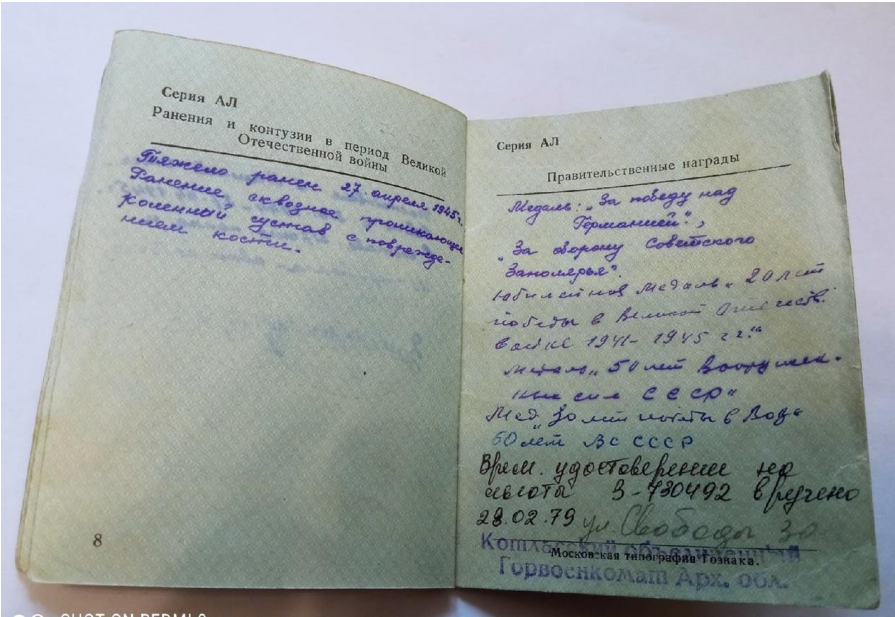 Серия АЛ
Ранения и контузии в период Великой
Отечественной войны
Тяжело ранен 27. апреля 1945г.
Ранение сквозное проникающее
коленный сустав с поврежде-
нием кости.
8
Серия АЛ
Правительственные награды
Медаль: „За победу над
Германией",
„За оборону Советского
Заполярья".
Юбилейная медаль „20 лет
победы в Великой Отечеств.
войне 1941-1945 г.г."
медаль „50 лет Вооружен-
ных сил СССР"
Мед. „30 лет победы в ВОВ"
60 лет ВС СССР
Врем. удостоверение на
льготы В-730492 вручено
28.02.79 ул. Свободы 30
Московская типография Гознака.
Котласский объединенный
Горвоенкомат Арх. обл.
SHOT ON REDMI 8